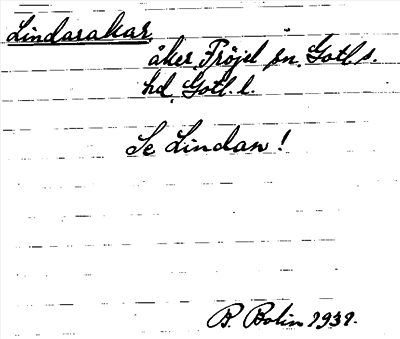 Lindarakar,
åker, Fröjel sn, Gotl. s.
hd, Gotl. l.
Se Lindan!
B. Bolin 1939.